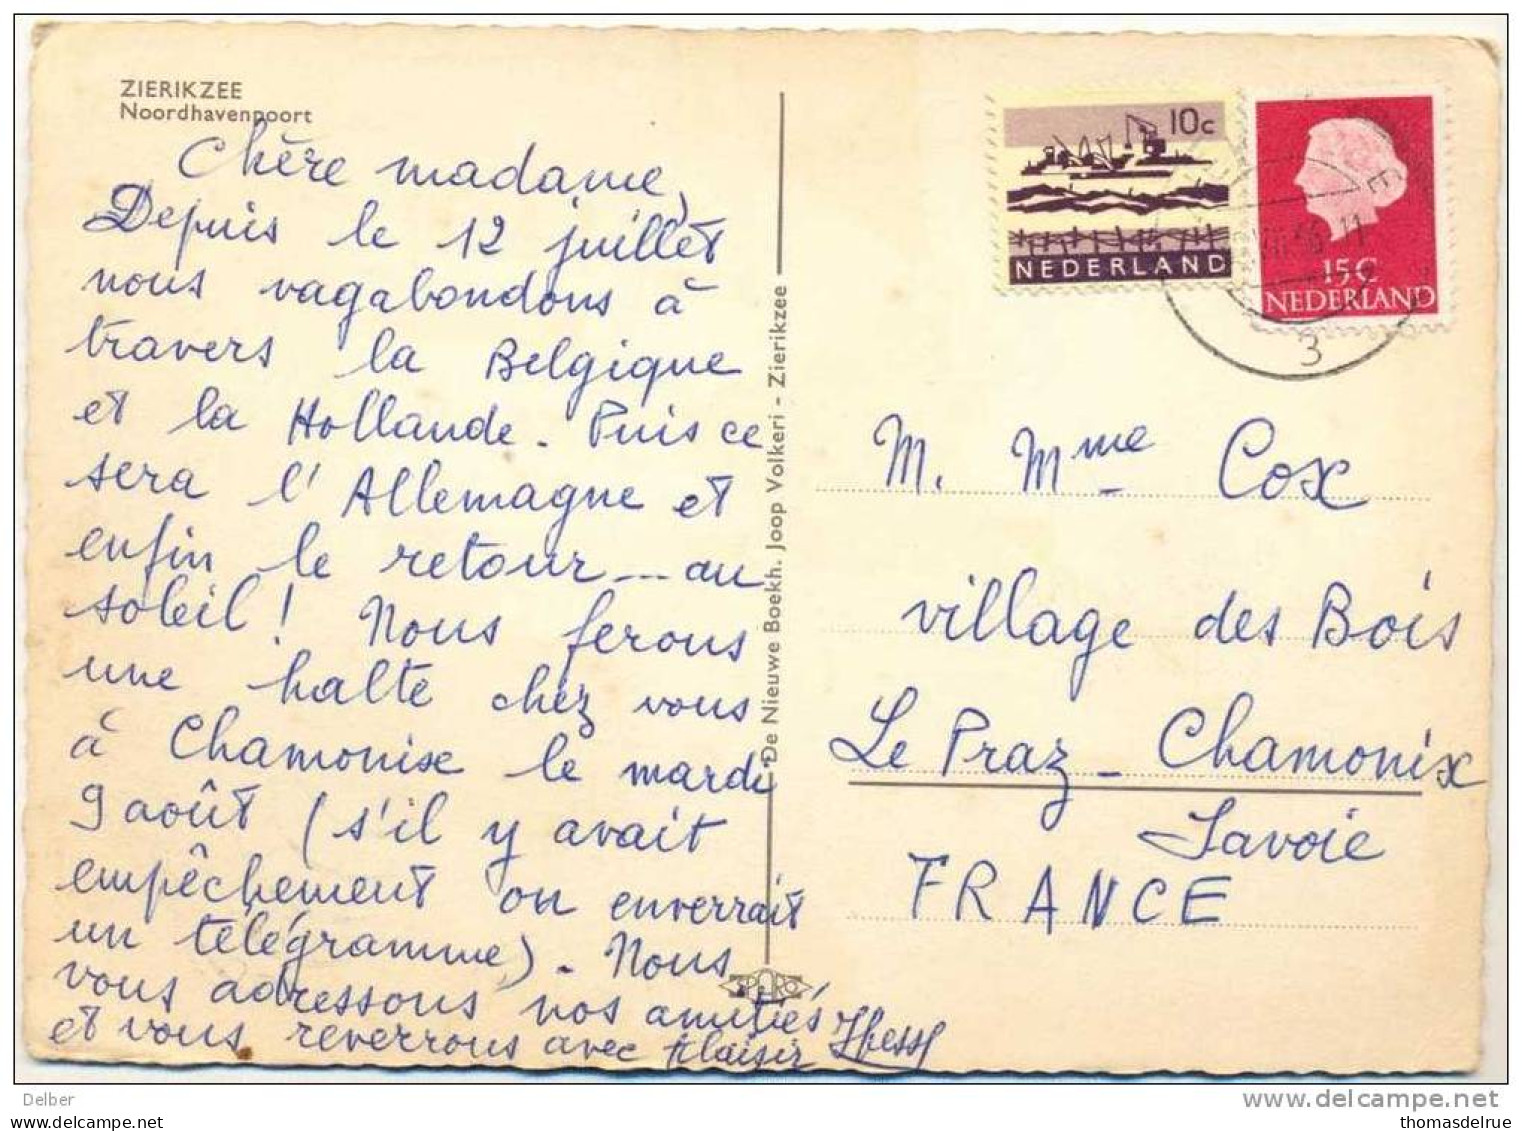 ZIERIKZEE
Noordhavenpoort
Chère madame,
Depuis le 12 juillet
nous vagabondons à
travers la Belgique
et la Hollande. Puis ce
sera l'Allemagne et
enfin le retour - au
soleil! Nous ferons
une halte chez vous
à Chamonix le mardi
9 août (s'il y avait
empêchement on enverrait
un télégramme). Nous
vous adressons nos amitiés
et vous reverrons avec plaisir
De Nieuwe Boekh. Joop Volkeri - Zierikzee
SPARO
10c
NEDERLAND
15C
NEDERLAND
3
M. Mme Cox
village des Bois
Le Praz - Chamonix
Savoie
FRANCE
Delber
www.delcampe.net
Normandy.1944@yahoo.com
thomasdelrue